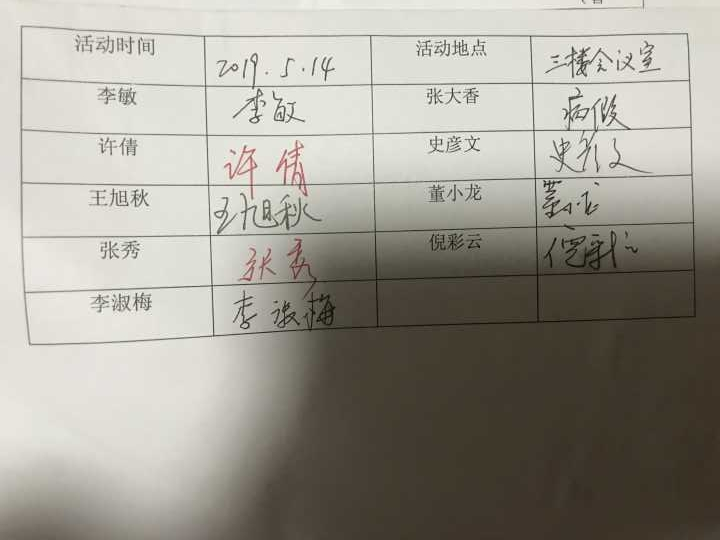 活动时间 2019.5.14 活动地点 三楼会议室
李敏 李敏 张大香 病假
许倩 许倩 史彦文 史彦文
王旭秋 王旭秋 董小龙 董小龙
张秀 张秀 倪彩云 倪彩云
李淑梅 李淑梅